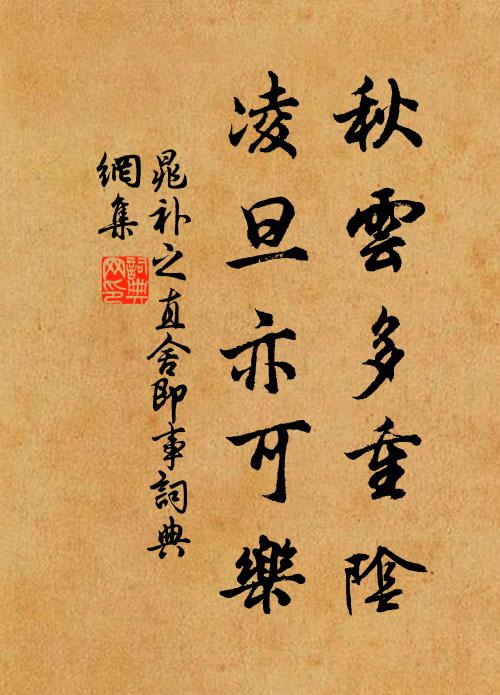 秋雲多重陰
凌旦亦可樂
晁补之直舍即事詞典
網集
詞典
网印